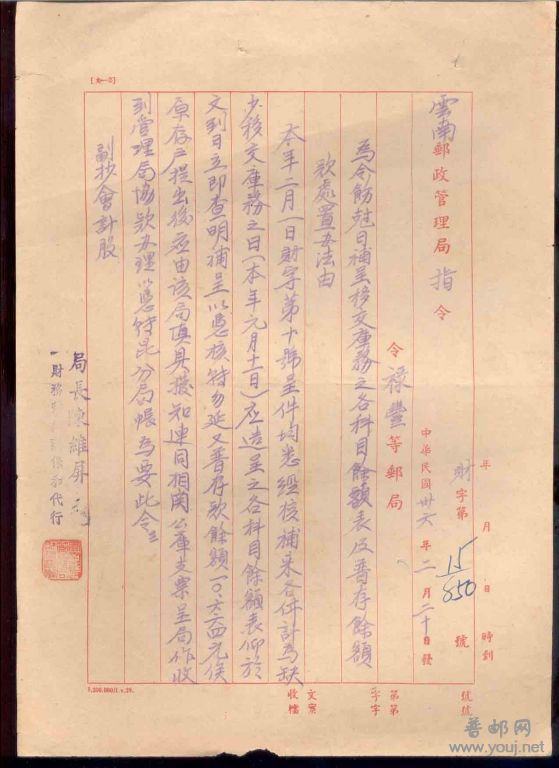 [大—8]
雲南郵政管理局 指令
令 祿豐 等郵局
年 月 日 時到
財字第 15/850 號
中華民國 卅六 年 二 月 二十 日發
為令飭尅日補呈移交庫務之各科目餘額表及普存餘額
款處置办法由
本年二月一日財字第十號呈件均悉經核補呆合併計為缺
少移交庫務之日(本年元月十一日)应造呈之各科目餘額表仰於
文到日立即查明補呈以憑核符勿延又普存款餘額一〇.六六四元俟
原存户提出後应由該局填具撥知連同相関公庫支票呈局作收
到管理局協款办理以憑符昆分局帳為要此令
副抄會計股
局長陳維屏
財務 代行
文案
收檔
第 號
第 號
字
字
5,200,000/1.v.28.
普邮网
www.youj.net